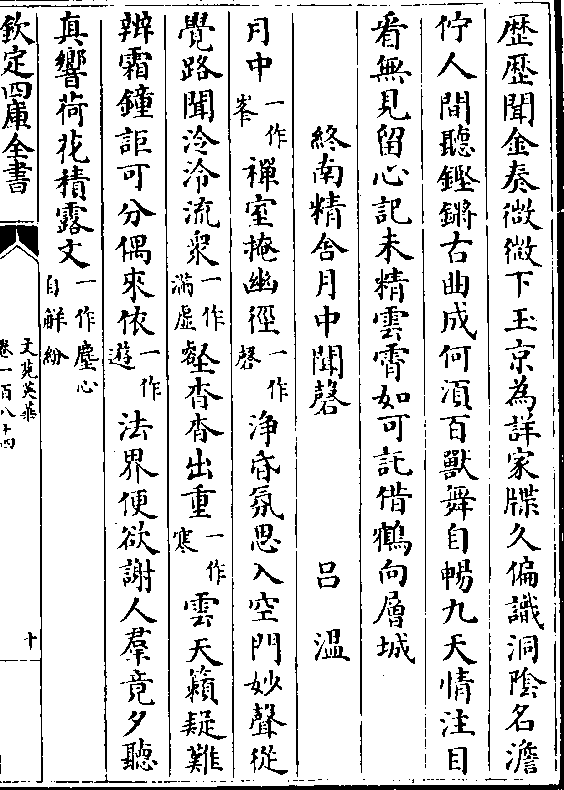 歴歴聞金奏微微下玉京為詳家牒久偏識洞陰名澹
佇人間聽鏗鏘古曲成何須百獸舞自暢九天情注目
看無見留心記未精雲霄如可託借鶴向層城
終南精舍月中聞磬 吕温
月中一作峯禪室掩幽徑一作磬浄昏氛思入空門妙聲從
覺路聞泠泠流衆一作滿虚壑杳杳出重一作寒雲天籟疑難
辨霜鐘詎可分偶來依一作遊法界便欲謝人羣竟夕聽
真響荷花積露文一作塵心自解紛
欽定四庫全書
文苑英華
卷一百八十四
十